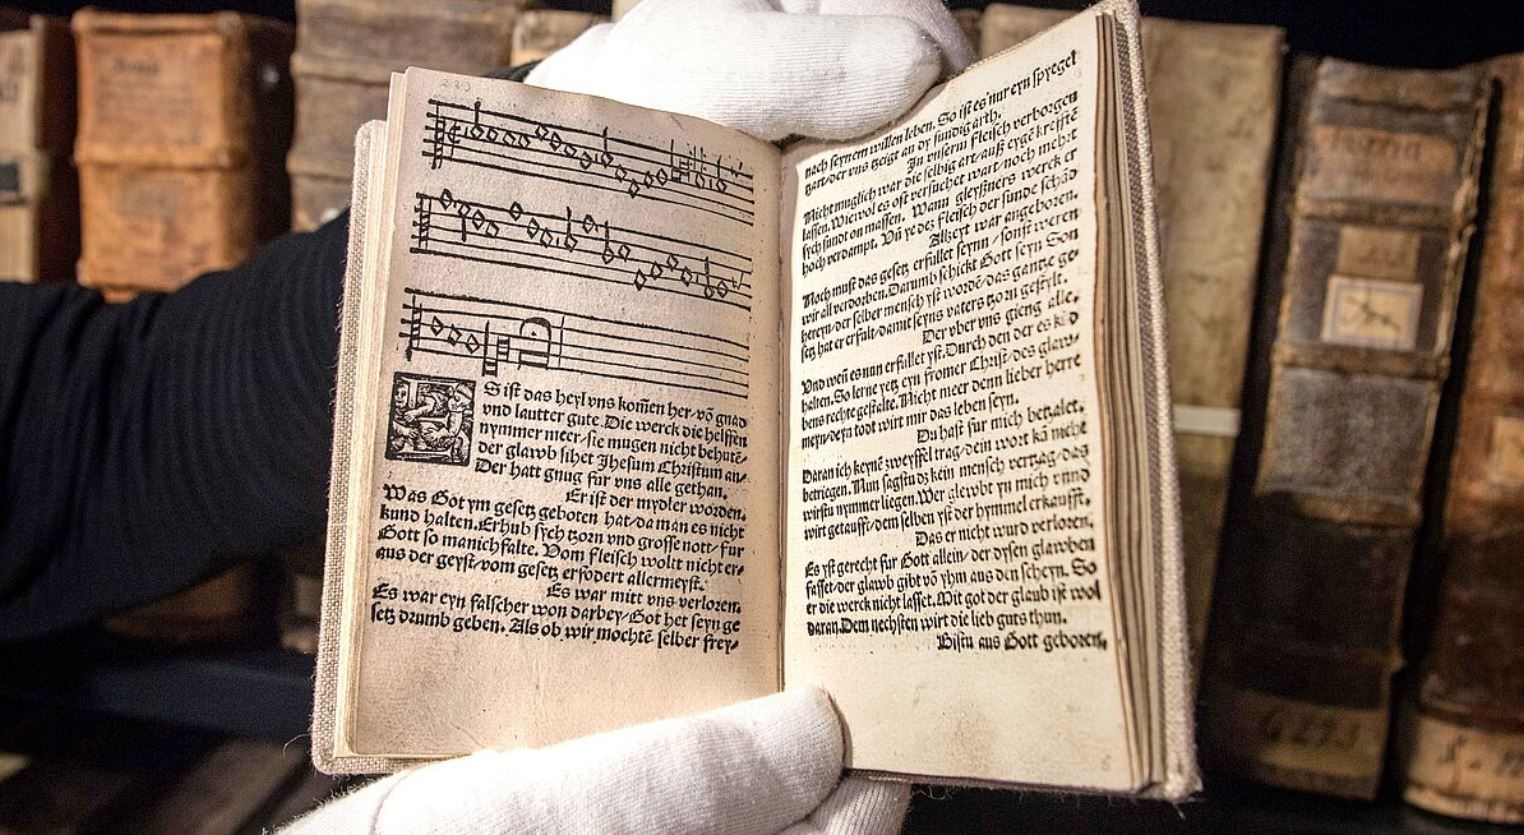 S ist das heyl vns kom̃en her/võ gnad
vnd lautter gute. Die werck die helffen
nymmer meer/sie mugen nicht behutẽ/
der glawb sihet Jhesum Christum an/
Der hatt gnug fur vns alle gethan.
Er ist der mydler worden.
Was Got ym gesetz geboten hat/da man es nicht
kund halten. Erhub sych tzorn vnd grosse nott/fur
Gott so manichfalte. Vom fleisch wolt nicht er/
aus der geyst/vom gesetz erfodert allermeyst.
Es war mitt vns verloren.
Es war eyn falscher won darbey/Got het seyn ge
setz drumb geben. Als ob wir mochtẽ selber frey/
nach seynem willen leben. So ist es nur eyn spyegel
tzart/der vns tzeigt an dy sundig arth.
Jn vnserm fleisch verborgen
Nicht muglich war die selbig art/auß eygẽ krefftẽ
lassen. Wie wol es oft versuchet wart/noch meht
sych sundt on massen. Wann gleyßners werck er
hoch verdampt. Vñ ye dez fleisch der sunde schãd
Allzeyt war angeboren.
Noch must das gesetz erfullet seynn/sonst weren
wir all verdorben. Darumb schickt Gott seyn Son
hereyn/der selber mensch yst wordẽ/das gantze ge/
setz hat er erfult/damit seyns vaters tzorn gestylt.
Der vber vns gieng alle.
Vnd weñ es nun erfullet yst. Durch den der es kũd
halten. So lerne yetz eyn fromer Christ/des glaw/
bens rechte gestalte. Nicht meer denn lieber herre
meyn/deyn todt wirt mir das leben seyn.
Du hast fur mich betzalet.
Daran ich keynẽ zweyffel trag/dein wort kã nicht
betriegen. Nun sagstu dz kein mensch vertzag/das
wirstu nymmer liegen. Wer glewbt yn mich vnnd
wirt getaufft/dem selben yst der hymmel erkaufft.
Das er nicht wurd verloren.
Es yst gerecht fur Gott allein/der dysen glawben
fasset/der glawb gibt võ yhm aus den scheyn. So
er die werck nicht lasset. Mit got der glaub ist wol
daran. Dem nechsten wirt die lieb guts thun.
Bistu aus Gott geboren.